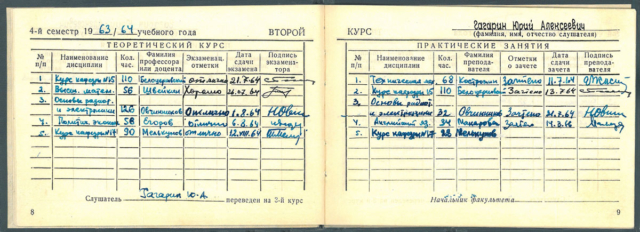 4-й семестр 1963/64 учебного года ВТОРОЙ
ТЕОРЕТИЧЕСКИЙ КУРС
№ п/п Наименование дисциплин Кол. час. Фамилия профессора или доцента Экзаменац. отметки Дата сдачи экзамена Подпись экзаменатора
1. Курс кафедры №15 110 Белоцерковский отлично 21.7.64
2. Высш. матем. 56 Швейкин Хорошо
3. Основы радиот.
и электроники 126 Овчинников Отлично 1.8.64
4. Политич. эконом 56 Егоров отлично 6.8.64
5. Курс кафедры №17 90 Мелькумов отлично
Слушатель Гагарин Ю.А. переведен на 3-й курс
8
КУРС Гагарин Юрий Алексеевич
(фамилия, имя, отчество слушателя)
ПРАКТИЧЕСКИЕ ЗАНЯТИЯ
№ п/п Наименование дисциплин Кол. час. Фамилия преподавателя Отметка о зачете Дата сдачи зачета Подпись преподавателя
1. 68 Зачтено 11.7.64
2. Курс кафедры 15 110 Белоцерковский Зачтено 13.7.64
3. Основы радиот.
и электроники 32 Овчинников Зачтено
4. Английский яз. 34 Макарова Зачтено
5. Курс кафедры №17 28 Мелькумов
Начальник факультета
9